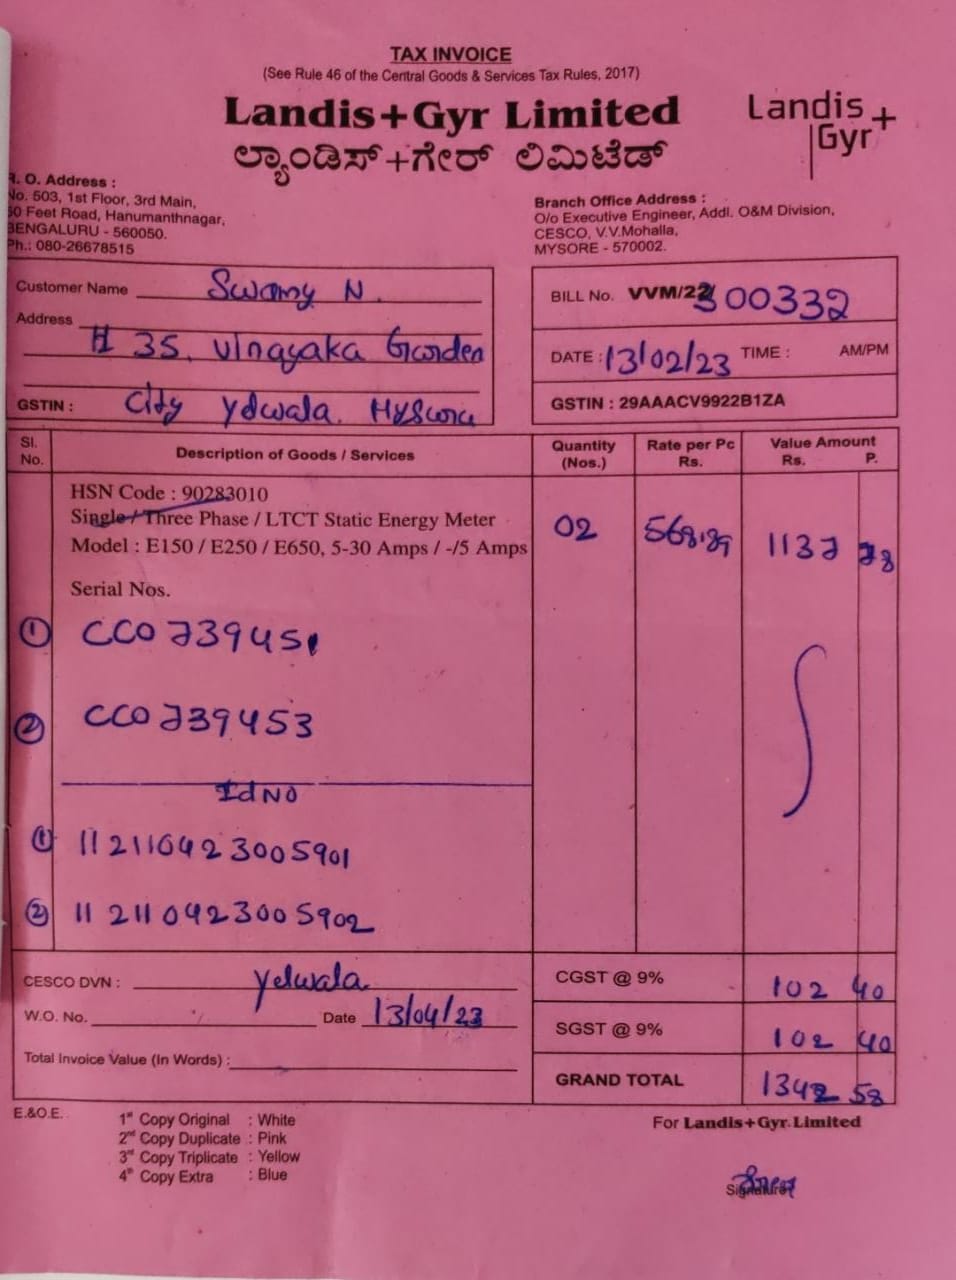 TAX INVOICE
(See Rule 46 of the Central Goods & Services Tax Rules, 2017)
Landis+Gyr Limited
ಲ್ಯಾಂಡಿಸ್+ಗೇರ್ ಲಿಮಿಟೆಡ್
Landis+
Gyr
R. O. Address :
No. 503, 1st Floor, 3rd Main,
60 Feet Road, Hanumanthnagar,
BENGALURU - 560050.
Ph.: 080-26678515
Branch Office Address :
O/o Executive Engineer, Addl. O&M Division,
CESCO, V.V.Mohalla,
MYSORE - 570002.
Customer Name Swamy N.
Address
# 35, Vinayaka Garden
GSTIN : City Yelwala. Mysore
BILL No. VVM/22 300332
DATE : 13/02/23 TIME : AM/PM
GSTIN : 29AAACV9922B1ZA
Sl. No. Description of Goods / Services Quantity (Nos.) Rate per Pc Rs. Value Amount Rs. P.
HSN Code : 90283010
Single / Three Phase / LTCT Static Energy Meter 02 568.89 1137 78
Model : E150 / E250 / E650, 5-30 Amps / -/5 Amps
Serial Nos.
① CC0739451
② CC0739453
Id NO
① 112110423005901
② 112110423005902
CESCO DVN : Yelwala
W.O. No. Date 13/04/23
Total Invoice Value (In Words) :
CGST @ 9% 102 40
SGST @ 9% 102 40
GRAND TOTAL 1342 58
E.&O.E.
1st Copy Original : White
2nd Copy Duplicate : Pink
3rd Copy Triplicate : Yellow
4th Copy Extra : Blue
For Landis+Gyr Limited
Signature